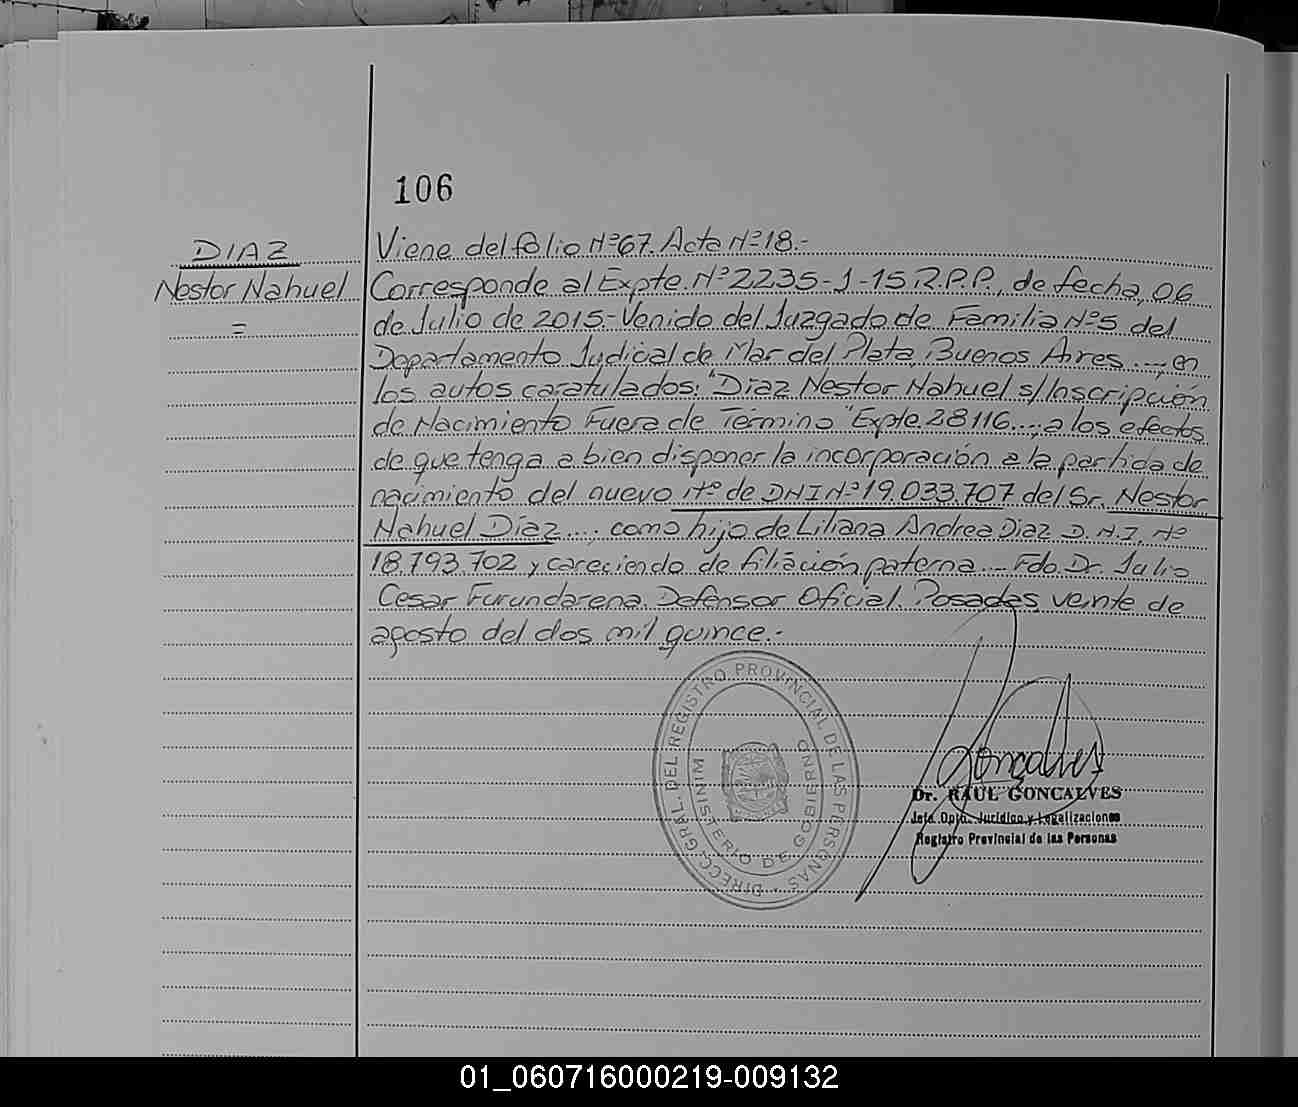 106
DIAZ
Nestor Nahuel
=
Viene del folio Nº 67. Acta Nº 18.-
Corresponde al Expte. Nº 2235-J-15 R.P.P., de fecha, 06
de Julio de 2015.- Venido del Juzgado de Familia Nº 5 del
Departamento Judicial de Mar del Plata, Buenos Aires...., en
los autos caratulados: "Diaz Nestor Nahuel s/Inscripción
de Nacimiento Fuera de Término" Expte. 28116...., a los efectos
de que tenga a bien disponer la incorporación a la partida de
nacimiento del nuevo Nº de DNI Nº 19.033.707 del Sr. Nestor
Nahuel Díaz...., como hijo de Liliana Andrea Diaz D.N.I. Nº
18.793.702 y careciendo de filiación paterna.... Fdo. Dr. Julio
Cesar Furundarena. Defensor Oficial. Posadas veinte de
agosto del dos mil quince.-
DIRECC. GRAL. DEL REGISTRO PROVINCIAL DE LAS PERSONAS
MINISTERIO DE GOBIERNO
Goncalves
Dr. RAUL GONCALVES
Jefe Dpto. Jurídico y Legalizaciones
Registro Provincial de las Personas
01_060716000219-009132